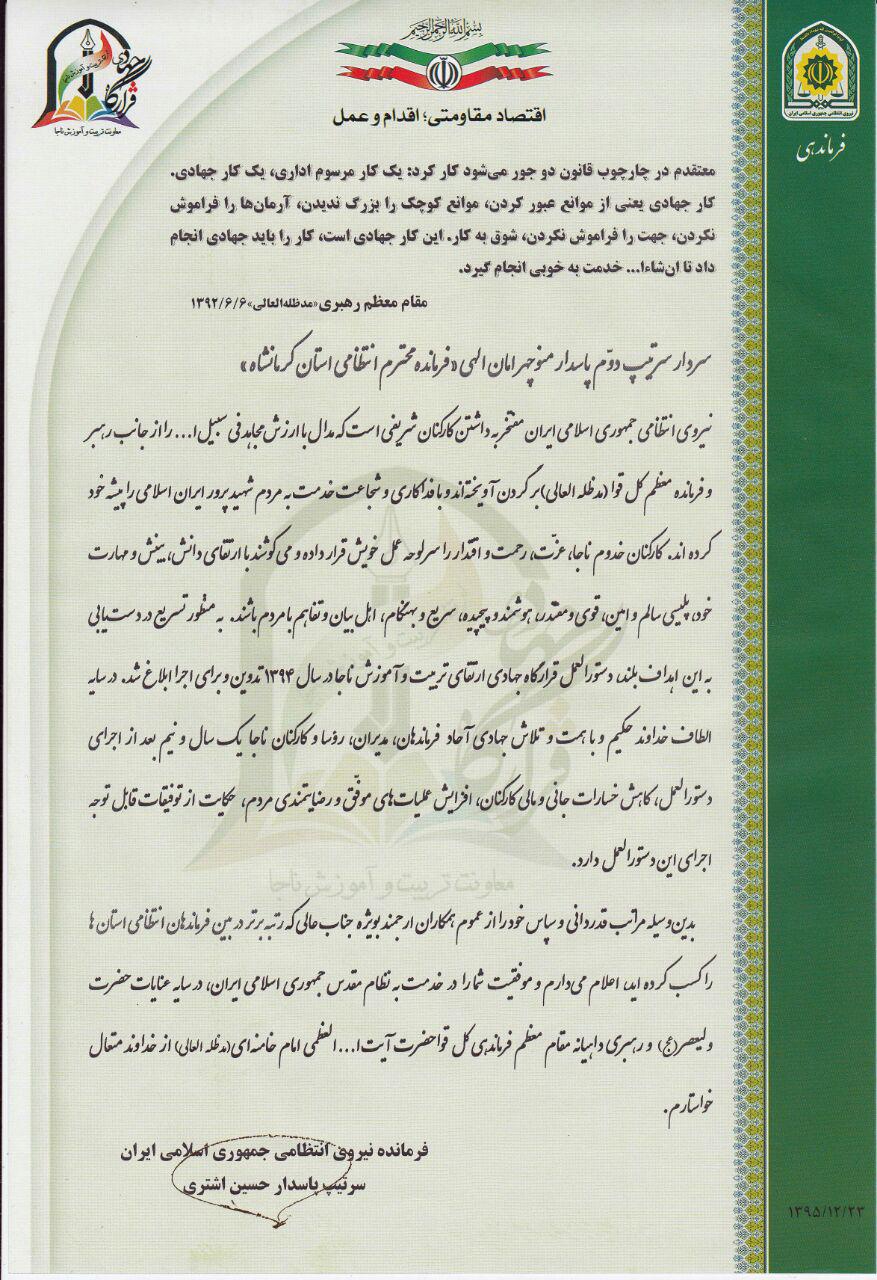 بسم الله الرحمن الرحیم
اقتصاد مقاومتی؛ اقدام و عمل
قرارگاه جهادی
ارتقای تربیت و آموزش ناجا
معاونت تربیت و آموزش ناجا
نیروی انتظامی جمهوری اسلامی ایران
فرماندهی
معتقدم در چارچوب قانون دو جور می‌شود کار کرد: یک کار مرسوم اداری، یک کار جهادی.
کار جهادی یعنی از موانع عبور کردن، موانع کوچک را بزرگ ندیدن، آرمان‌ها را فراموش
نکردن، جهت را فراموش نکردن، شوق به کار. این کار جهادی است، کار را باید جهادی انجام
داد تا ان‌شاءا... خدمت به خوبی انجام گیرد.
مقام معظم رهبری«مدظله‌العالی»۱۳۹۲/۶/۶
سردار سرتیپ دوّم پاسدار منوچهر امان الهی «فرمانده محترم انتظامی استان کرمانشاه»
نیروی انتظامی جمهوری اسلامی ایران مفتخر به داشتن کارکنان شریفی است که مدال با ارزش مجاهد فی سبیل ا... را از جانب رهبر
و فرمانده معظم کل قوا (مدظله العالی) بر گردن آویخته‌اند و با فداکاری و شجاعت خدمت به مردم شهید پرور ایران اسلامی را پیشه خود
کرده اند. کارکنان خدوم ناجا، عزّت، رحمت و اقتدار را سرلوحه عمل خویش قرار داده و می‌کوشند با ارتقای دانش، بینش و مهارت
خود، پلیسی سالم و امین، قوی و مقتدر، هوشمند و پیچیده، سریع و بهنگام، اهل بیان و تفاهم با مردم باشند. به منظور تسریع در دست‌یابی
به این اهداف بلند، دستورالعمل قرارگاه جهادی ارتقای تربیت و آموزش ناجا در سال ۱۳۹۴ تدوین و برای اجرا ابلاغ شد. در سایه
الطاف خداوند حکیم و با همت و تلاش جهادی آحاد فرماندهان، مدیران، رؤسا و کارکنان ناجا یک سال و نیم بعد از اجرای
دستورالعمل، کاهش خسارات جانی و مالی کارکنان، افزایش عملیات‌های موفّق و رضایتمندی مردم، حکایت از توفیقات قابل توجه
اجرای این دستورالعمل دارد.
بدین‌وسیله مراتب قدردانی و سپاس خود را از عموم همکاران ارجمند بویژه جناب عالی که رتبه برتر در بین فرماندهان انتظامی استان ها
را کسب کرده اید، اعلام می‌دارم و موفقیت شما را در خدمت به نظام مقدس جمهوری اسلامی ایران، در سایه عنایات حضرت
ولیعصر(عج) و رهبری داهیانه مقام معظم فرماندهی کل قوا حضرت آیت ا... العظمی امام خامنه‌ای(مدظله العالی) از خداوند متعال
خواستارم.
فرمانده نیروی انتظامی جمهوری اسلامی ایران
سرتیپ پاسدار حسین اشتری
۱۳۹۵/۱۲/۲۳